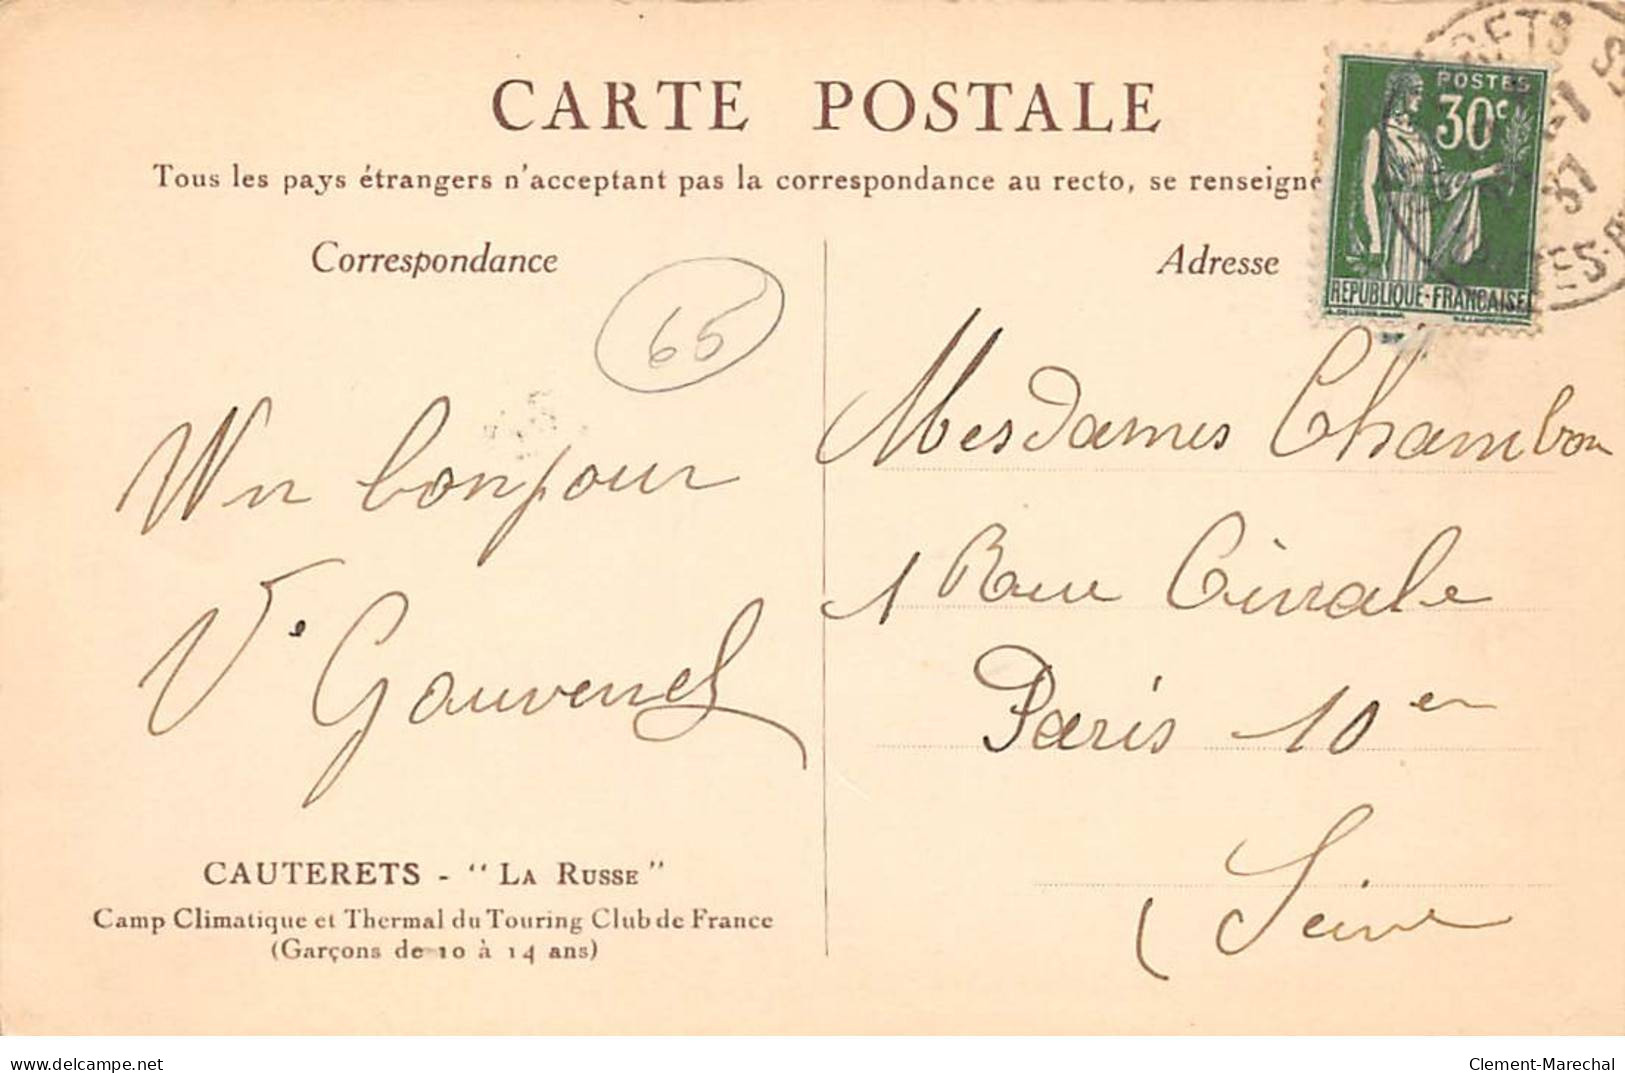 CARTE POSTALE
Tous les pays étrangers n'acceptant pas la correspondance au recto, se renseigne
Correspondance
Adresse
POSTES
30c
REPUBLIQUE·FRANÇAISE
65
Un bonjour
Ve Gauvenel
Mesdames Chambon
1 Rue
Paris 10en
Seine
CAUTERETS - "LA RUSSE"
Camp Climatique et Thermal du Touring Club de France
(Garçons de 10 à 14 ans)
delcampe.net
Clement-Marechal